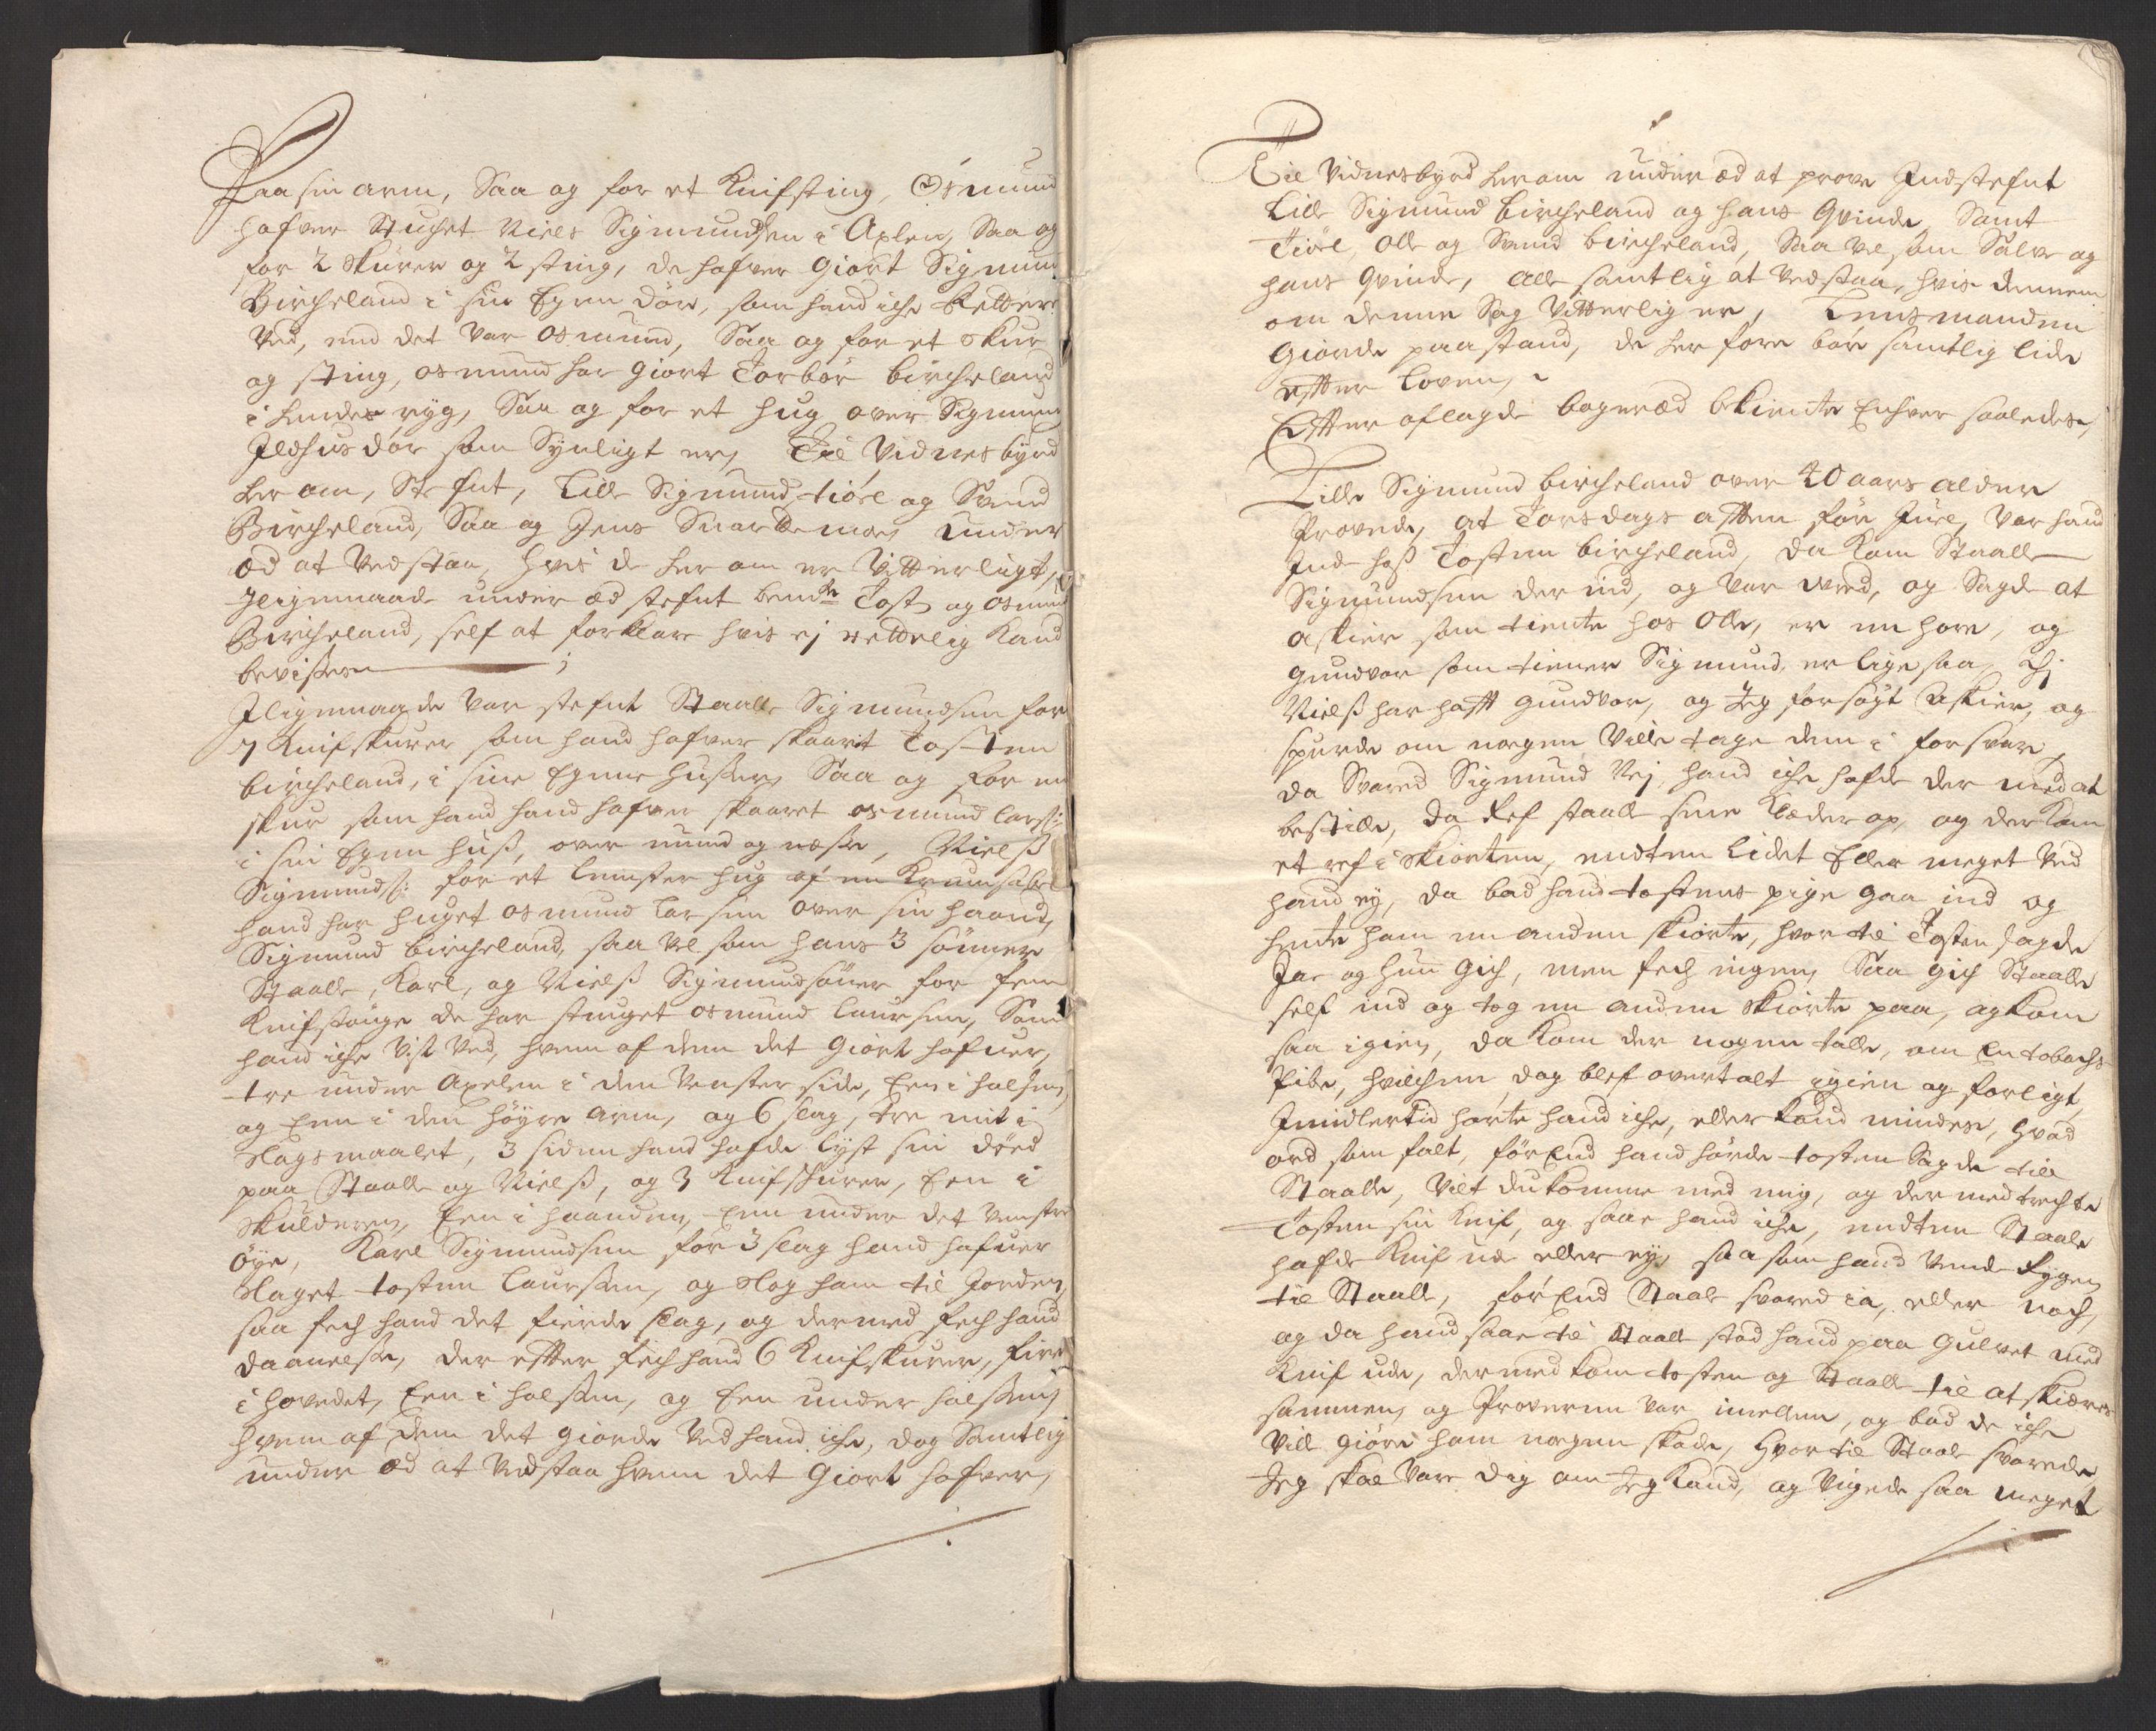 Paa sin arm, Saa og for et Knifsting, Osmund
hafver Stuchet Niels Sigmundsen i Axlen, Saa og
for 2 skurer og 2 sting, de hafver giort Sigmund
Bircheland i sin Egen dør, som hand iche Rettere
ved, end det var osmund, Saa og for et skur
og sting, osmund har giort Torbør bircheland
i hendes ryg, Saa og for et hug over Sigmund
Ildhus dør som Synligt er, Til Vidnesbyrd
her om, Stefnt, Lille Sigmund, tiøl og Svend
Bircheland, Saa og Jens Snartemoe, under
æd at vedstaa, hvis de her om er Vitterligt,
Jligemaade under æd stefnt bemte Tost og osmund
Bircheland, self at forklare hvis ej rettelig kand
bevisses
Jligemaade var stefnt Staalle Sigmundsen for
7 Knifskurer som hand hafver skaaret Tosten
bircheland, i sine Egne husser, Saa og for en
skur som hand hand hafver skaaret osmund Lars:
i sin Egen huß, over mund og næsse, Nielß
Sigmunds: for et lemster hug af en Krumsabel
hand har huget osmund Larsen over sin haand,
Sigmund bircheland, saa vel som hans 3 sønner
Staalle, Karl, og Nielß Sigmundsønner for fem
Knifstinge de har stuget osmund Laursen, Som
hand iche vist ved, hvem af dem det giort hafver,
tre under Axelen i den venster side, Een i halsen,
og Een i den høyre arm, og 6 slag, tre mit i
slagsmaalet, 3 siden hand hafde lyst sin død
paa Staalle og Nielß, og 3 Knifskurer, Een i
skulderen, Een i haanden, Een under det venstre
øye, Karl Sigmundsen for 3 slag hand hafver
slaget tosten Laurssen, og slog ham til Jorden,
saa fech hand det fierde slag, og dermed fech hand
daanelsse, der effter fech hand 6 Knifskurer, fire
i hovedet, Een i halssen, og Een under halssen,
hvem af dem det giorde ved hand iche, dog Samtlig
under æd at vedstaa hvem det Giort hafver,
Til Vidnesbyrd her om under æd at prove Indstefnt
Lille Sigmund bircheland og hans Qvinde, Samt
Tiøl, Olle og Svend bircheland, Saa vel som Salve og
hans Qvinde, alle samtlig at vedstaa, hvis dennem
om denne Sag Vitterlig er, Lensmanden
Giorde paastand, de herfore bør samtlig lide
effter Loven,
Effter aflagde bogeræd bekiente Enhver saaledes,
Lille Sigmund bircheland over 40 aars alder
Provede, at Torsdags afften før Juel, var hand
Inde hoß Tosten bircheland, da kom Staalle
Sigmundsen der ind, og var vred, og Sagde at
Askier som tiente hos Olle, er en hore, og
gundvor som tiener Sigmund er lige saa, thj
Nielß har hafft gundvor, og Jeg forsøgt Askier, og
spurde om nogen ville tage dem i forsvar,
da Svared Sigmund Nej, hand iche hafde der med at
bestille, da Ref staalle sine Klæder op, og der kom
et ref i Skiorten, endten lidet Eller meget ved
hand ey, da bad hand tostens pige gaa ind og
hente ham en anden skiorte, hvor til Tosten sagde
Ja, og hun gich, men fech ingen, Saa gich Staalle
self ind og tog en anden skiorte paa, og kom
saa igien, da kom der nogen talle, om En tobachs
Pibe, hvilchen dog blef overtalt igien og forligt,
Jmidlertid hørte hand iche, eller kand mindes, hvad
ord som falt, før End hand hørde tosten Sagde til
Staalle, vilt du komme med mig, og dermed trechte
Tosten sin knif, og saae hand iche, endten Staale
hafde knif ude eller ey, saa som hand vende Rygen
til Staalle, før End Staale svared ia, eller noch,
og da hand saae til Staalle stod hand paa gulvet med
Knif ude, dermed kom tosten og Staalle til at skiæres
sammen, og Proveren var imellem, og bad de iche
vill giøre ham nogen skade, hvor til Staale svarede,
Jeg skal vare dig om Jeg kand, og vigede saa meget